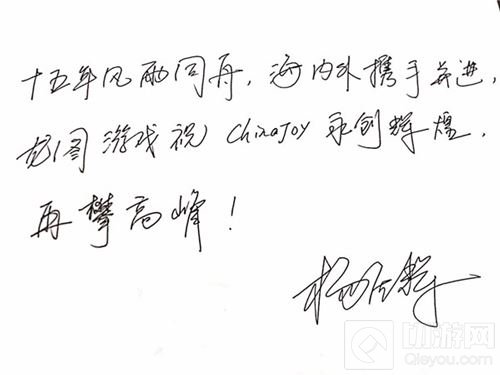 十五年风雨同舟，海内外携手并进，
龙图游戏祝 ChinaJoy 永创辉煌，
再攀高峰！
切游网
Qieyou.com